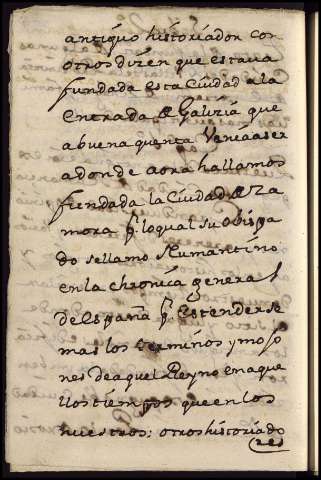 antiguo historiador con
otros dizen que estava
fundada esta Ciudad a la
entrada de Galizia que
a buena quenta Venia a ser
adonde aora hallamos
fundada la Ciudad de Za
mora p. lo qual su obispa
do se llamo Numantino
en la chronica general
de España p. Estenderse
mas los terminos y mojo
nes de aquel Reyno en aque
llos tiempos que en los
nuestros: otros historiado
res